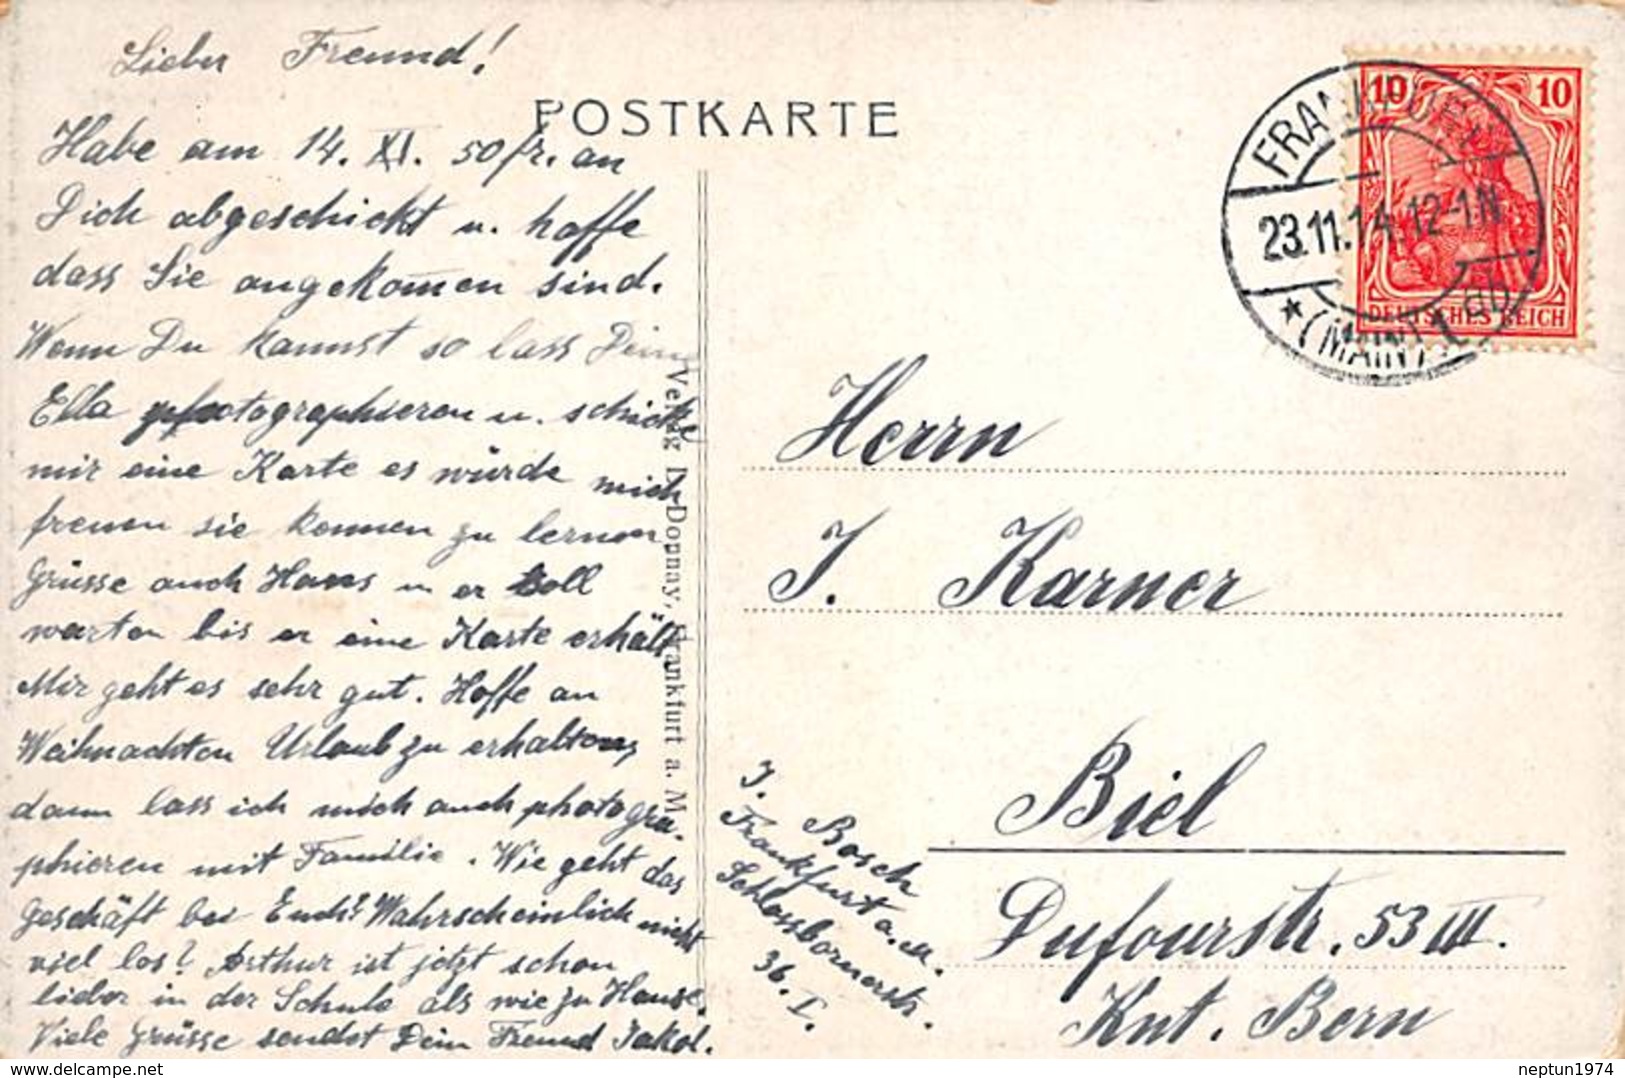 Lieber Freund!
POSTKARTE
Habe am 14. XI. 50 fr. an
Dich abgeschickt u. hoffe
dass Sie angekom̄en sind.
Wenn Du kannst so lass Deine
Ella photographieren u. schicke
mir eine Karte es würde mich
freuen sie kennen zu lernen
Grüsse auch Hans u er soll
warten bis er eine Karte erhält
Mir geht es sehr gut. Hoffe an
Weihnachten Urlaub zu erhalten,
dann lass ich mich auch photogra-
phieren mit Familie. Wie geht das
Geschäft bei Euch? Wahrscheinlich nicht
viel los? Arthur ist jetzt schon
lieber in der Schule als wie zu Hause.
Viele Grüsse sendet Dein Freund Jakob.
Verlag Donnay, Frankfurt a. M.
10 10
DEUTSCHES REICH
FRANKFURT
23.11.14.12-1.N
* (MAIN) 1
Herrn
J. Karner
Biel
Dufourstr. 53 III.
Knt. Bern
J. Bosch
Frankfurt a. M.
Schlossbornerstr.
36. I.
delcampe.net
neptun1974